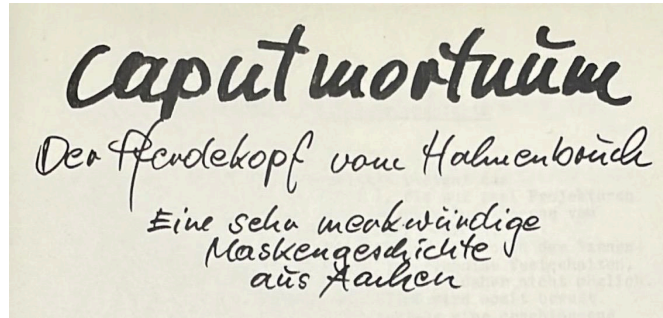 caput mortuum
Der Pferdekopf vom Hahnenbruch
Eine sehr merkwürdige
Maskengeschichte
aus Aachen